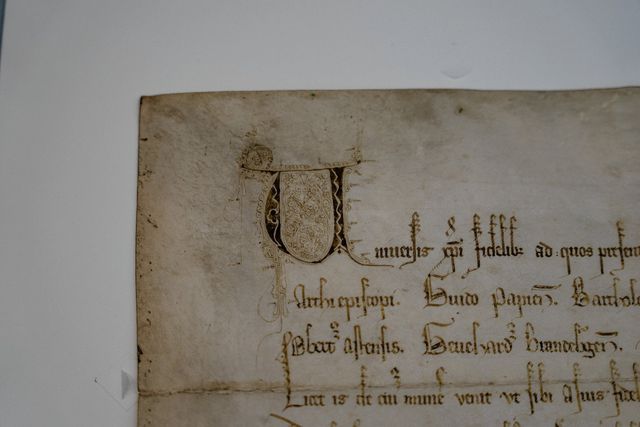 Uniuersis xp̄i fidelib; ad quos presen
Archiepiscopi. Guido Papien̄. Barthol
Obert᷒ Astensis. Geuehard᷒ Brandeb̄gen̄.
Licet is de cui᷒ mun̄e venit vt sibi a suis fidel